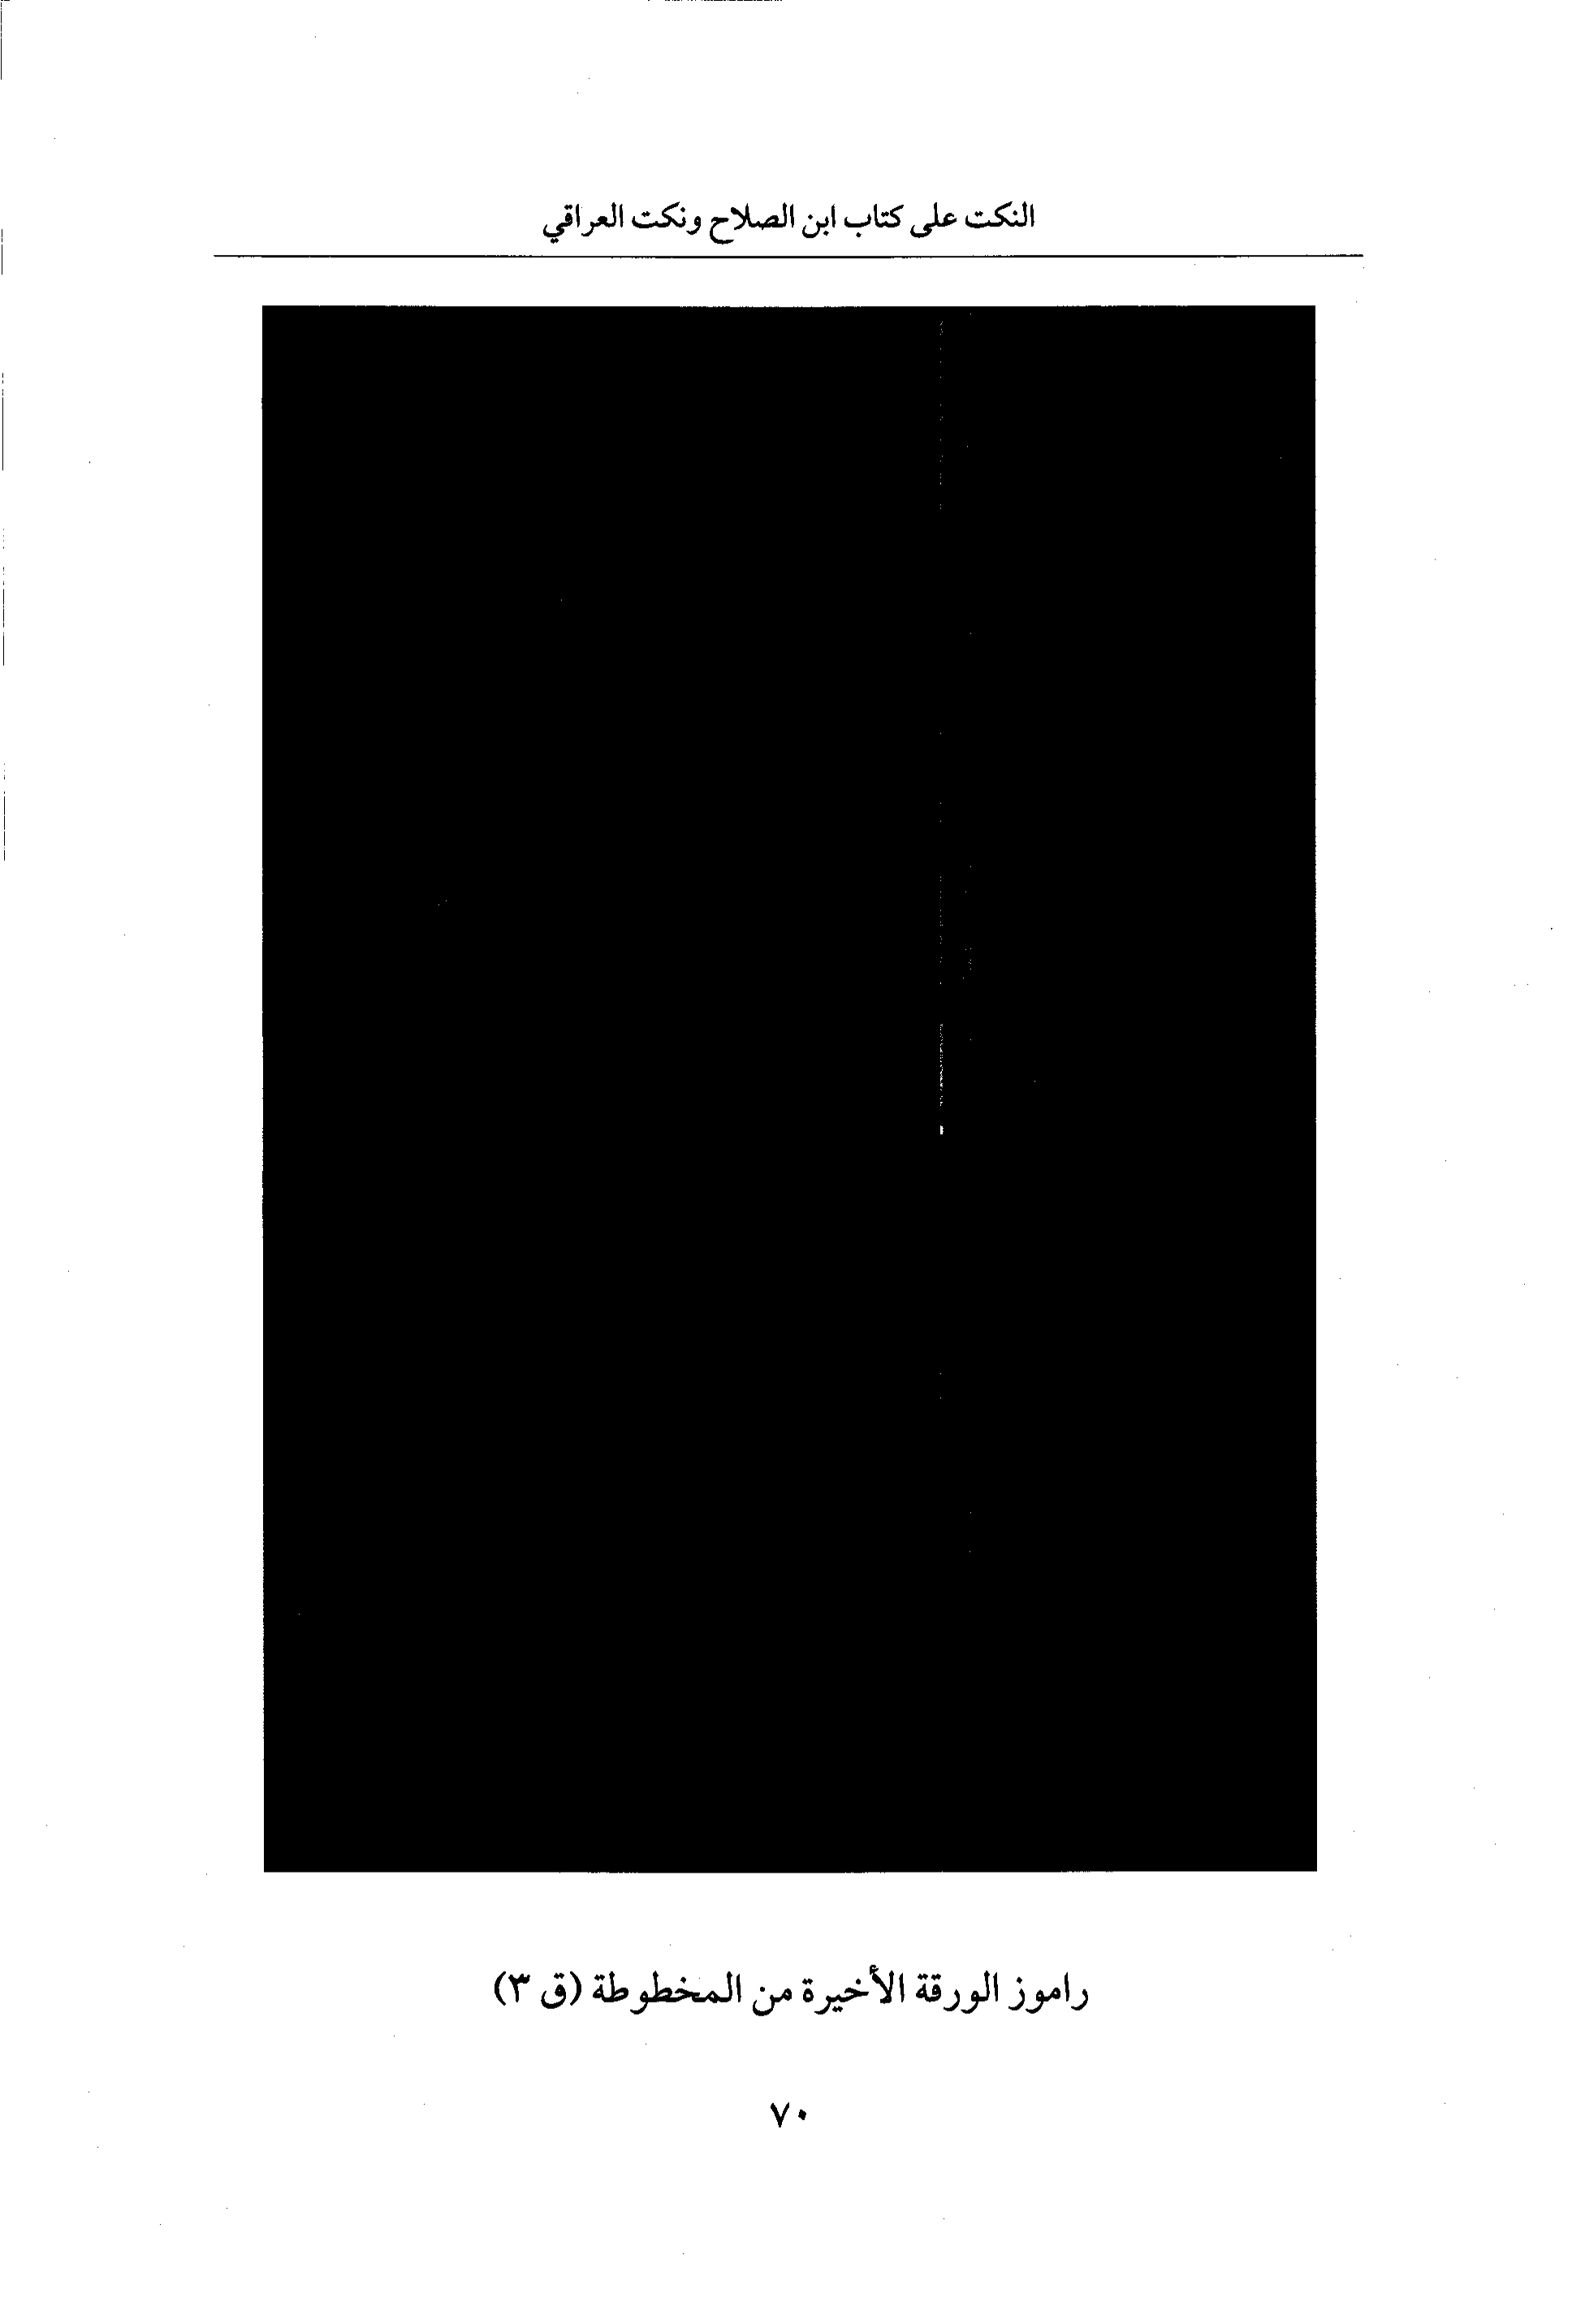 النكت على كتاب ابن الصلاح ونكت العراقي
راموز الورقة الأخيرة من المخطوطة (ق ٣)
٧٠